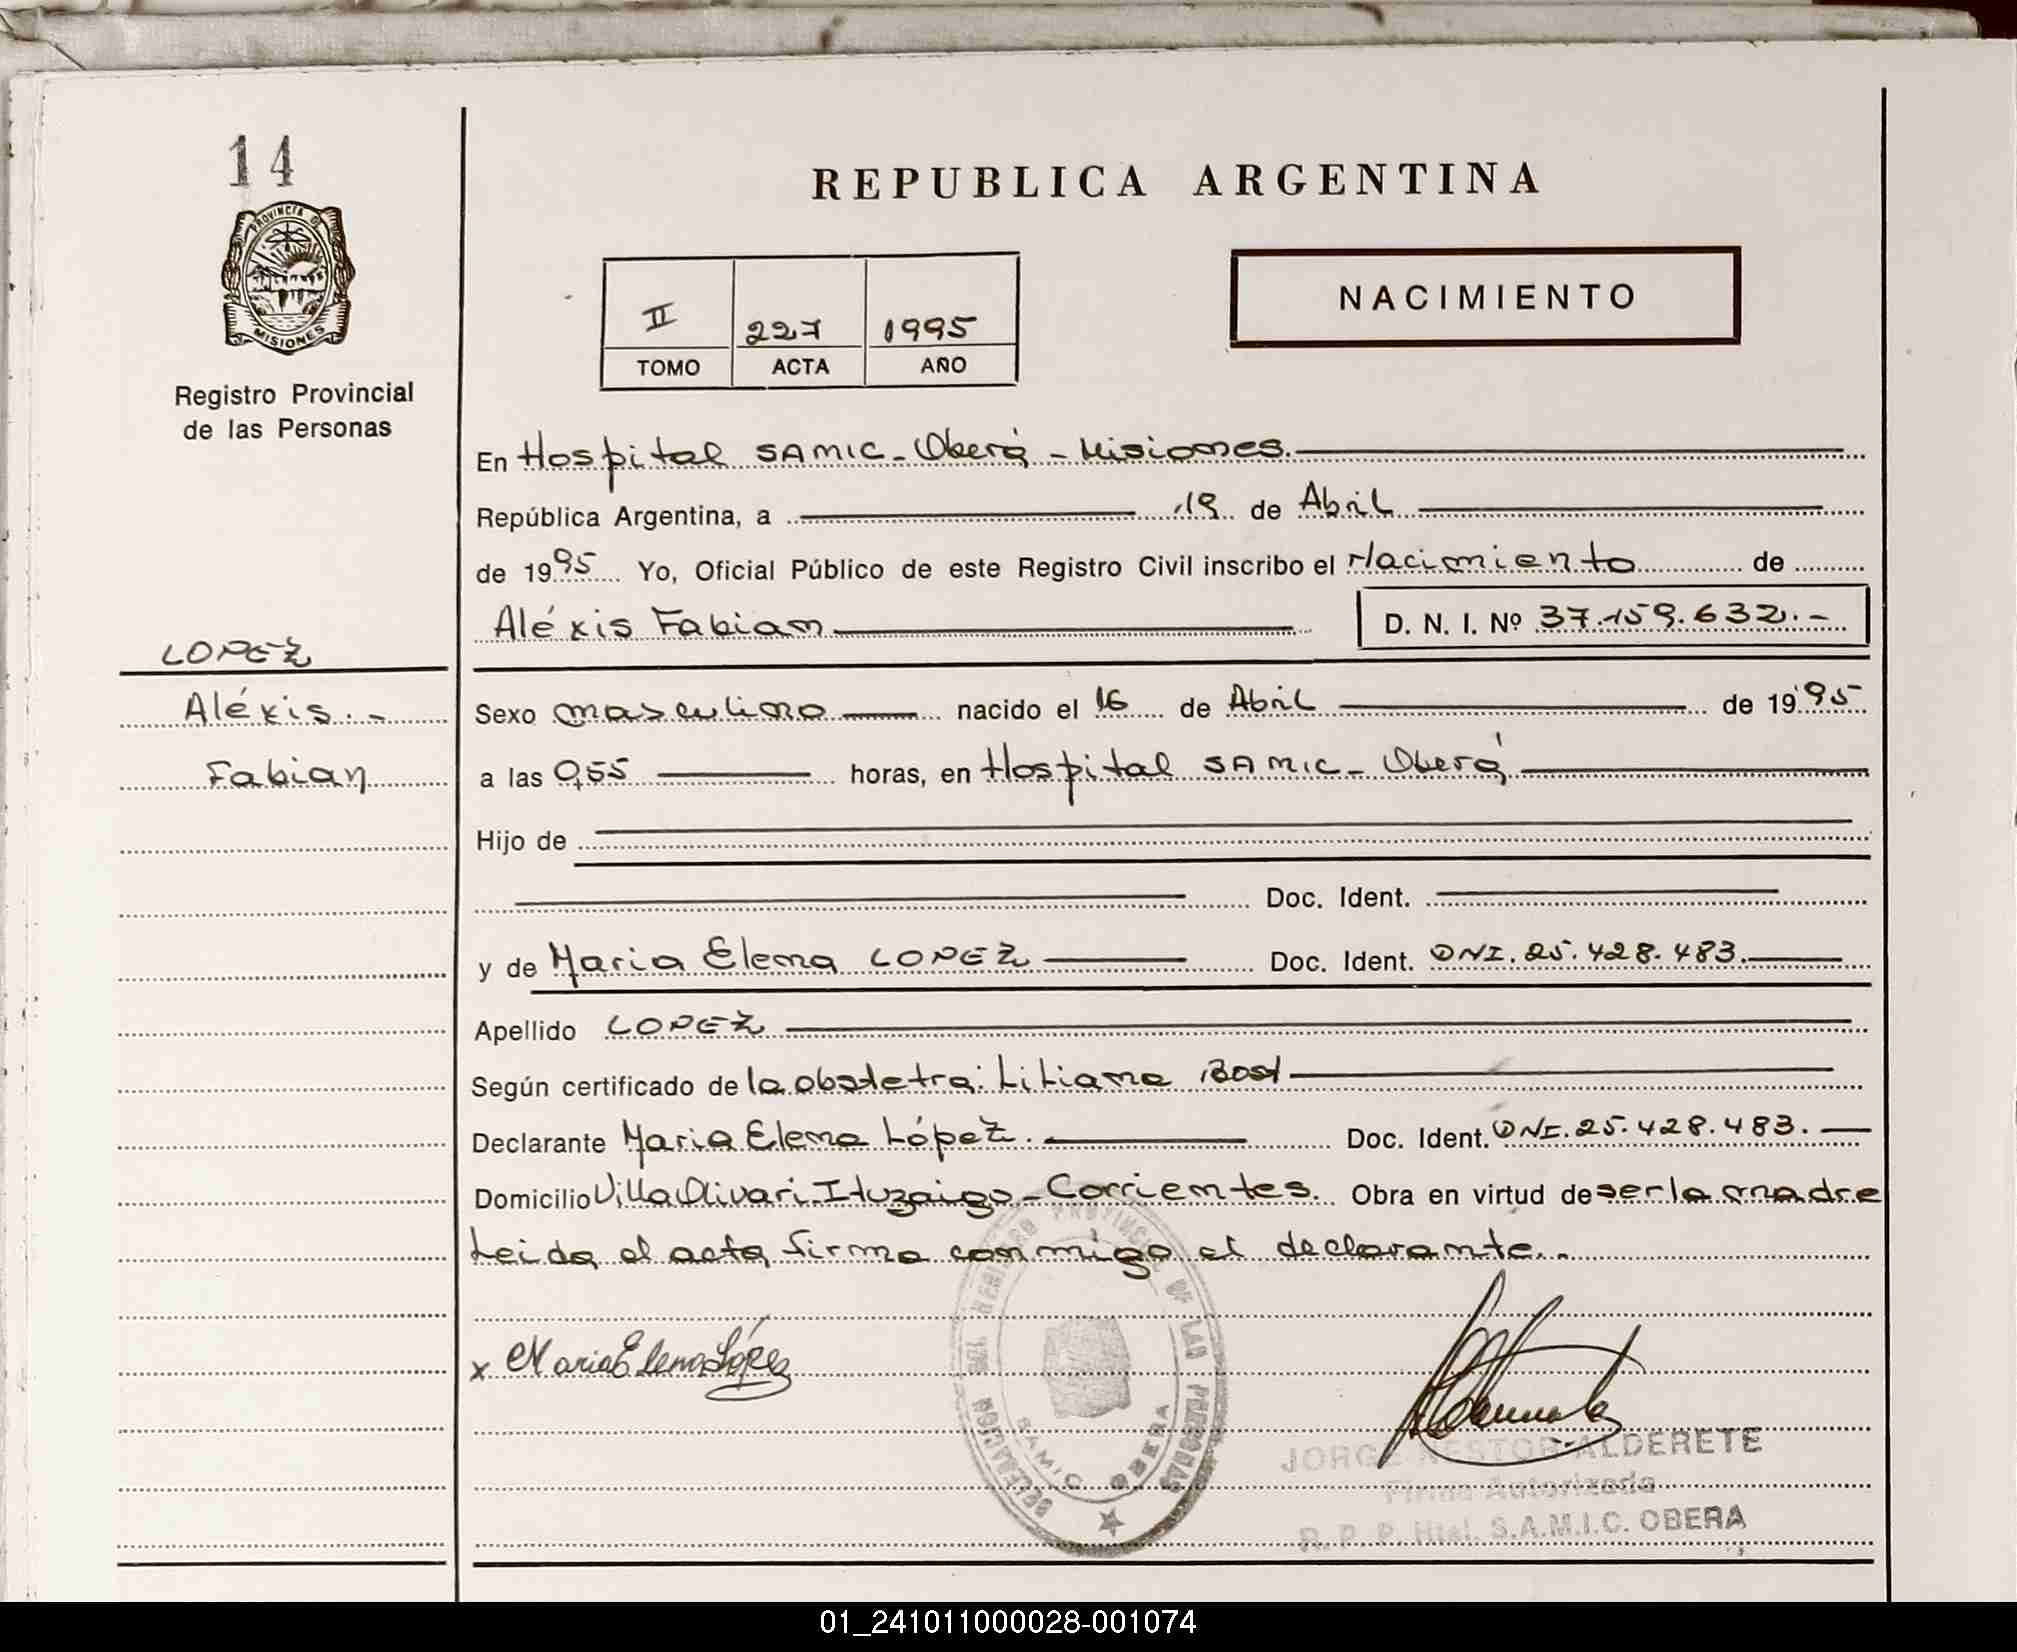 14
REPUBLICA ARGENTINA
PROVINCIA D
MISIONES
II 227 1995
TOMO ACTA AÑO
NACIMIENTO
Registro Provincial
de las Personas
En Hospital SAMIC - Oberá - Misiones.
República Argentina, a 19 de Abril
de 1995 Yo, Oficial Público de este Registro Civil inscribo el Nacimiento de
Aléxis Fabian D. N. I. Nº 37.159.632.-
LOPEZ
Aléxis.-
Fabian
Sexo masculino nacido el 16 de Abril de 1995
a las 0,55 horas, en Hospital SAMIC - Oberá
Hijo de
Doc. Ident.
y de Maria Elena LOPEZ Doc. Ident. DNI. 25.428.483.
Apellido LOPEZ
Según certificado de la obstetra: Liliana Bost
Declarante Maria Elena López. Doc. Ident. DNI. 25.428.483.
Domicilio Villa Olivari. Ituzaigo - Corrientes. Obra en virtud de ser la madre
Leida el acta, firma conmigo el declarante..
x Maria Elena López
DELEGACION REGISTRO PROVINCIAL DE LAS PERSONAS
SAMIC OBERA
JORGE NESTOR ALDERETE
Firma Autorizada
R. P. P. Htal. S.A.M.I.C. OBERA
01_241011000028-001074